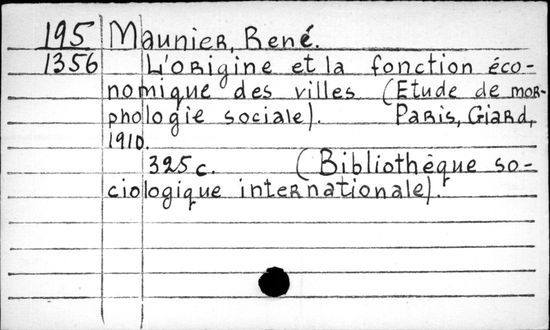 195 Maunier, René.
1356 L'origine et la fonction éco-
nomique des villes (Etude de mor-
phologie sociale). Paris, Giard,
1910.
325 c. (Bibliothèque so-
ciologique internationale).